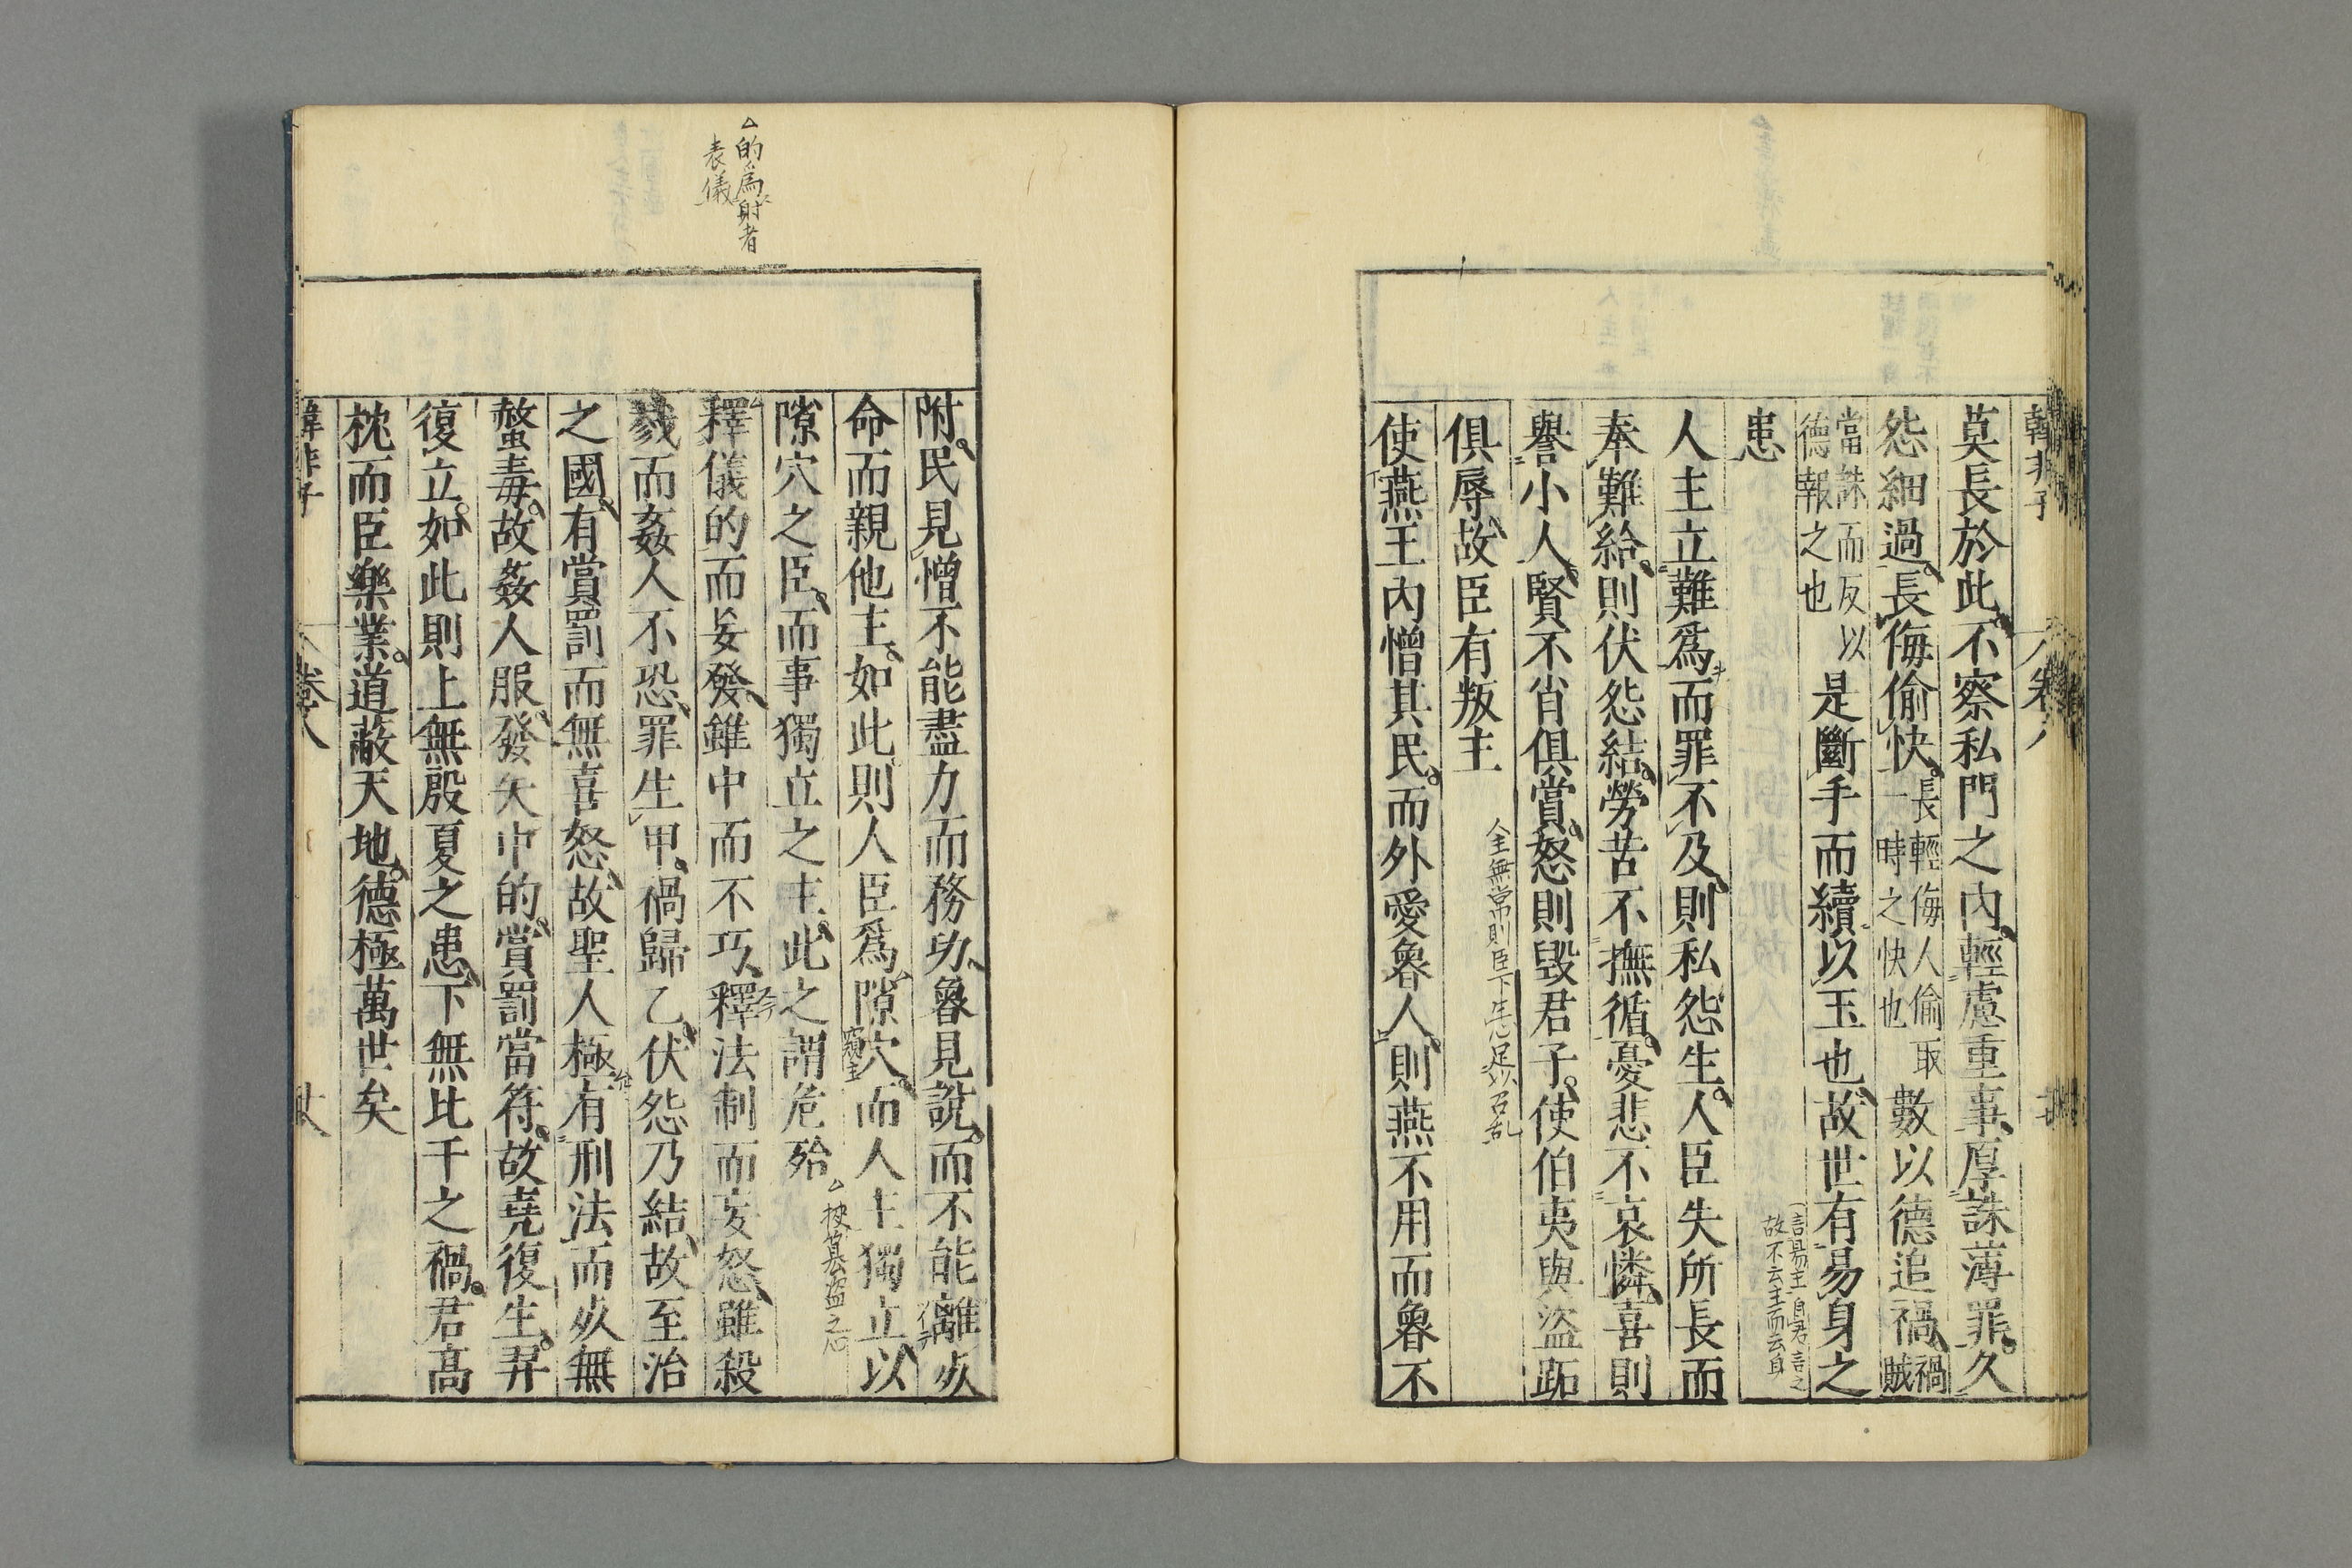 韓非子 卷八
莫長於此不察私門之內輕慮重事厚誅薄罪久
怨細過長侮偷快長輕侮人偷取一時之快也數以德追禍禍賊
當誅而反以德報之也是斷手而續以玉也故世有易身之
患
言易主自君言之
故不云主而云身
人主立難爲而罪不及則私怨生人臣失所長而
奉難給則伏怨結勞苦不撫循憂悲不哀憐喜則
譽小人賢不肖俱賞怒則毀君子使伯夷與盜跖
俱辱故臣有叛主
全無常則臣下生心足以召乱
使燕王內憎其民而外愛魯人則燕不用而魯不
△的爲射者
表儀
附民見憎不能盡力而務功魯見說而不能離死
命而親他主如此則人臣爲隙穴而人主獨立以
隙穴之臣而事獨立之主此之謂危殆
釋儀的而妄發雖中而不巧釋法制而妄怒雖殺
戮而姦人不恐罪生甲禍歸乙伏怨乃結故至治
之國有賞罰而無喜怒故聖人極有刑法而死無
螫毒故姦人服發矢中的賞罰當符故堯復生羿
復立如此則上無殷夏之患下無比干之禍君高
枕而臣樂業道蔽天地德極萬世矣
韓非子 卷八